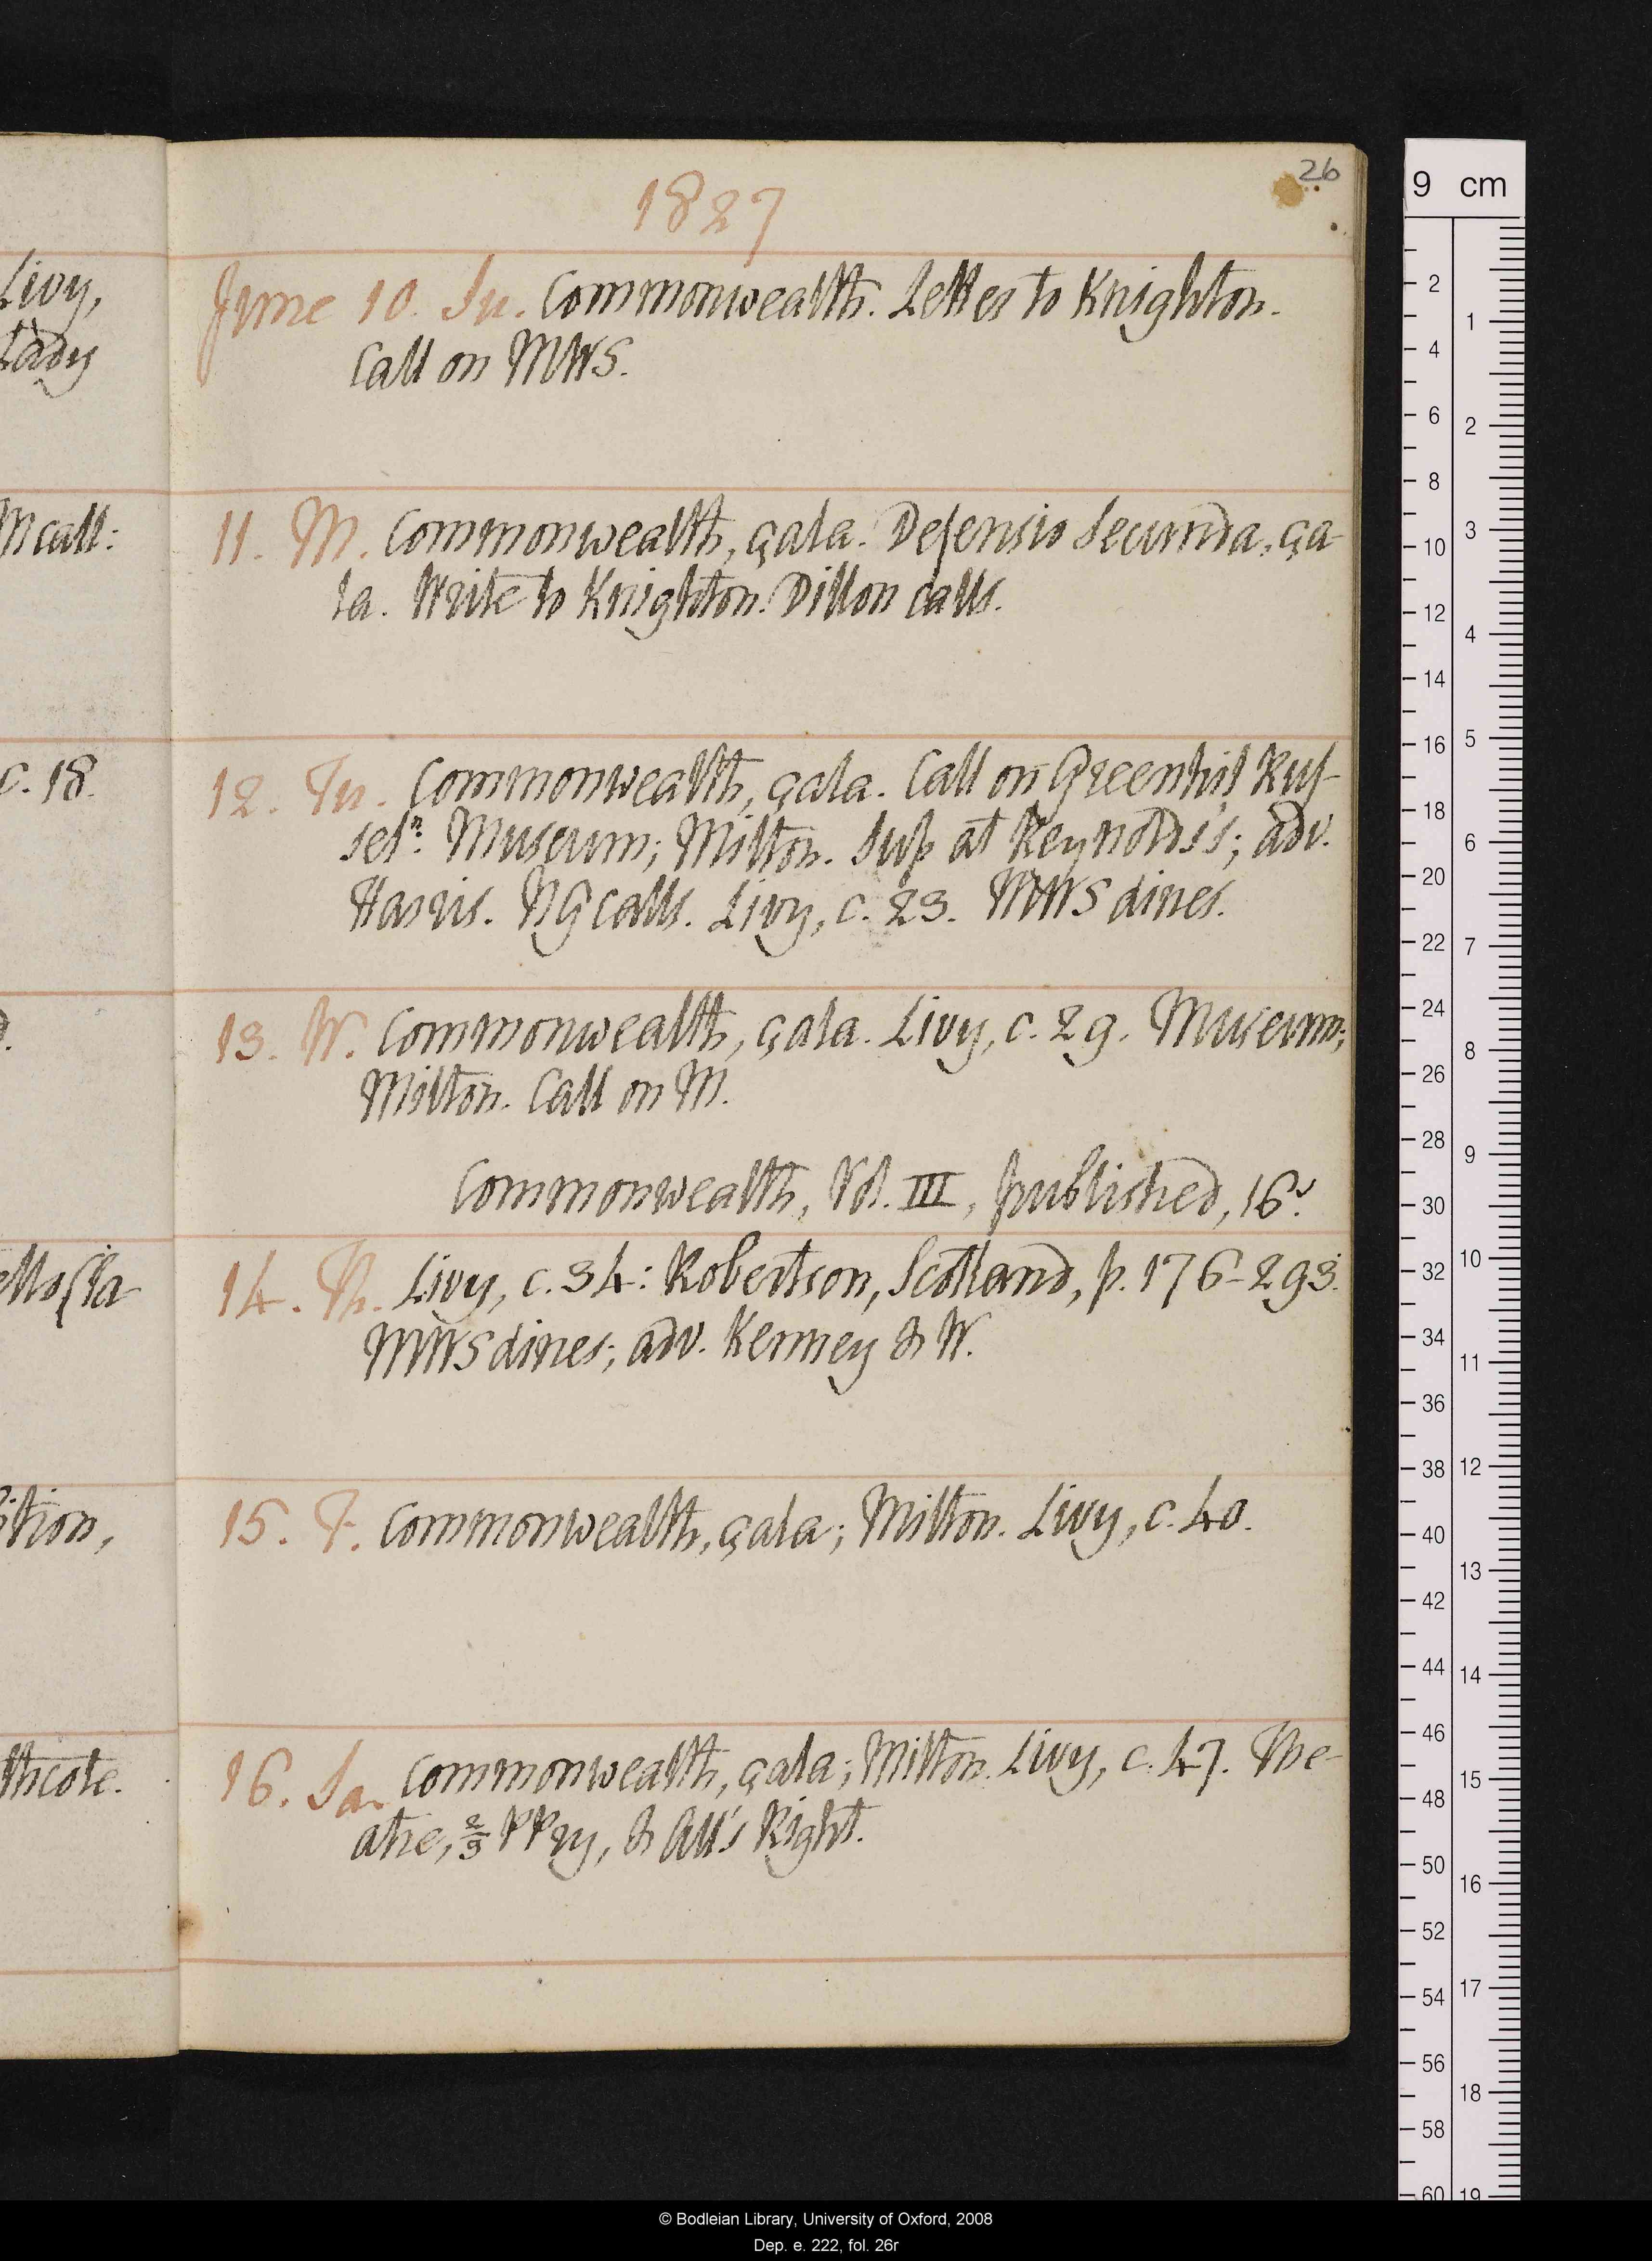 26
1827
Livy,
Lady
June 10. Su. Commonwealth. Letter to Knighton.
Call on MWS.
M call:
11. M. Commonwealth, çala. Defensio Secunda, ça-
la. Write to Knighton. Dillon calls.
c. 18.
12. Tu. Commonwealth, çala. Call on Greenhil Rus-
sel n: Museum; Milton. Sup at Reynolds's; adv.
Harris. NG calls. Livy, c. 23. MWS dines.
13. W. Commonwealth, çala. Livy, c. 29. Museum;
Milton. Call on M.
Commonwealth, Vol. III, published, 16.
14. Th. Livy, c. 34: Robertson, Scotland, p. 176-293.
MWS dines; adv. Kenney & W.
15. F. Commonwealth, çala; Milton. Livy, c. 40.
16. Sa. Commonwealth, çala; Milton. Livy, c. 47. The-
atre, 2/3 PPry, & All's Right.
9 cm
2 4 6 8 10 12 14 16 18 20 22 24 26 28 30 32 34 36 38 40 42 44 46 48 50 52 54 56 58 60
1 2 3 4 5 6 7 8 9 10 11 12 13 14 15 16 17 18 19
© Bodleian Library, University of Oxford, 2008
Dep. e. 222, fol. 26r